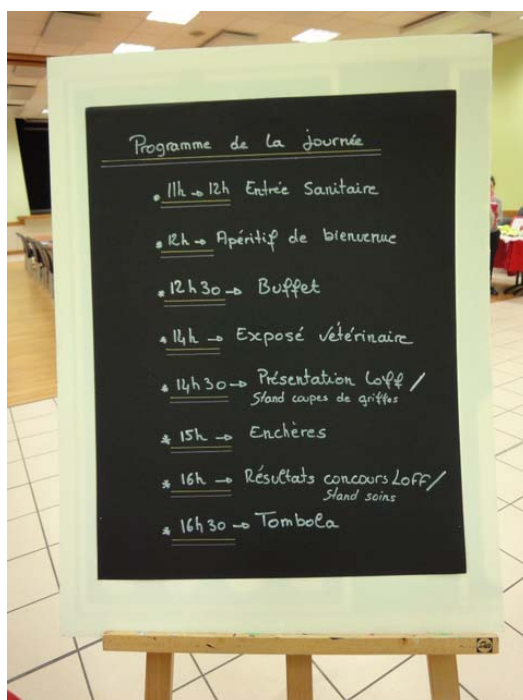 Programme de la journée
* 11h → 12h Entrée Sanitaire
* 12h → Apéritif de bienvenue
* 12h30 → Buffet
* 14h → Exposé vétérinaire
* 14h30 → Présentation Loff /
Stand coupes de griffes
* 15h → Enchères
* 16h → Résultats concours Loff /
Stand soins
* 16h30 → Tombola